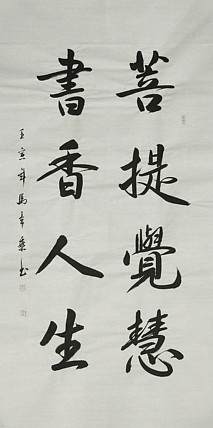 菩提覺慧
書香人生
壬寅年馬幸葉書